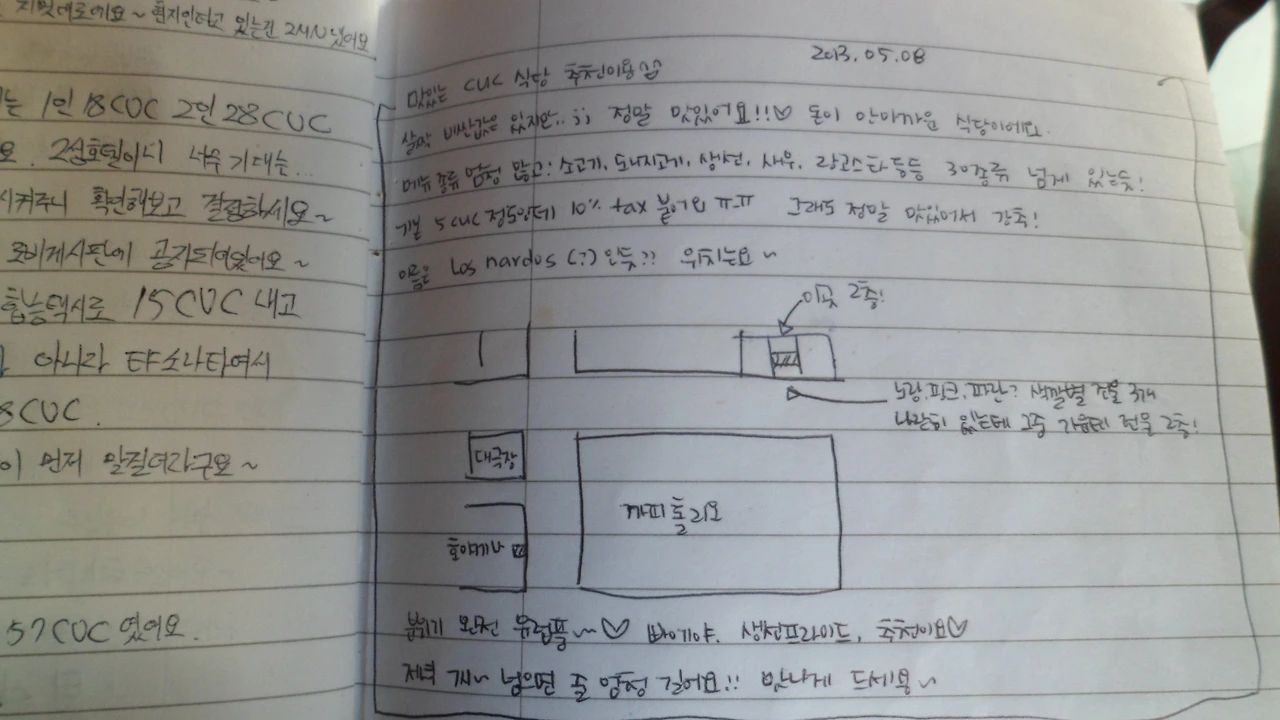 지멋대로에요~ 현지인
있는건 2시
는 1인 18CUC 2인 28CUC
요. 2성호텔이니 너무 기대는...
시켜주니 확인해보고 결정하세요~
로비게시판에 공지되어있어요~
합승택시로 15CUC 내고
아니라
8CUC.
이 먼저 말걸더라구요~
57CUC 였어요.
2013.05.08
맛있는 CUC 식당 추천이용^^
살짝 비싼감은 있지만..;; 정말 맛있어요!!♡ 돈이 안아까운 식당이에요.
메뉴 종류 엄청 많고: 소고기, 도네지고기, 생선, 새우, 랑고스타 등등 30종류 넘게 있는듯!
기본 5 CUC 정도인데 10% tax 붙어요 ㅠㅠ 그래도 정말 맛있어서 강추!
이름은 Los nardos (?) 인듯?? 위치는요~
이곳 2층!
노랑, 핑크, 파란? 색깔별 건물 3개
나란히 있는데 그중 가운데 건물 2층!
대극장
까피톨리오
호아끼나
분위기 완전 유럽풍~~♡ 빠에야, 생선프라이드, 추천이요♡
저녁 7시~ 넘으면 줄 엄청 길어요!! 맛나게 드세용~